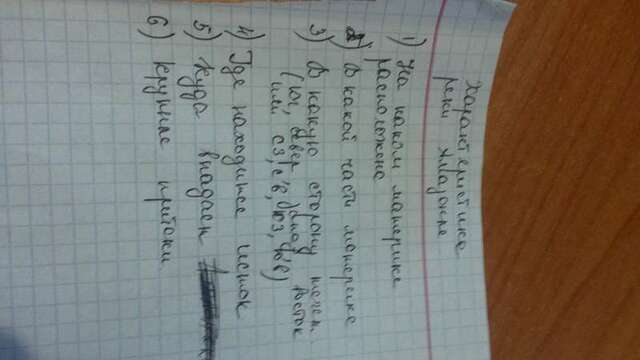 Характеристика
реки Амазонка
1) На каком материке
расположена
2) В какой части материка
3) В какую сторону течет
(юг, север, запад, восток
или сз, с/в, юз, ю/в)
4) Где находится исток
5) Куда впадает
6) Крупные притоки